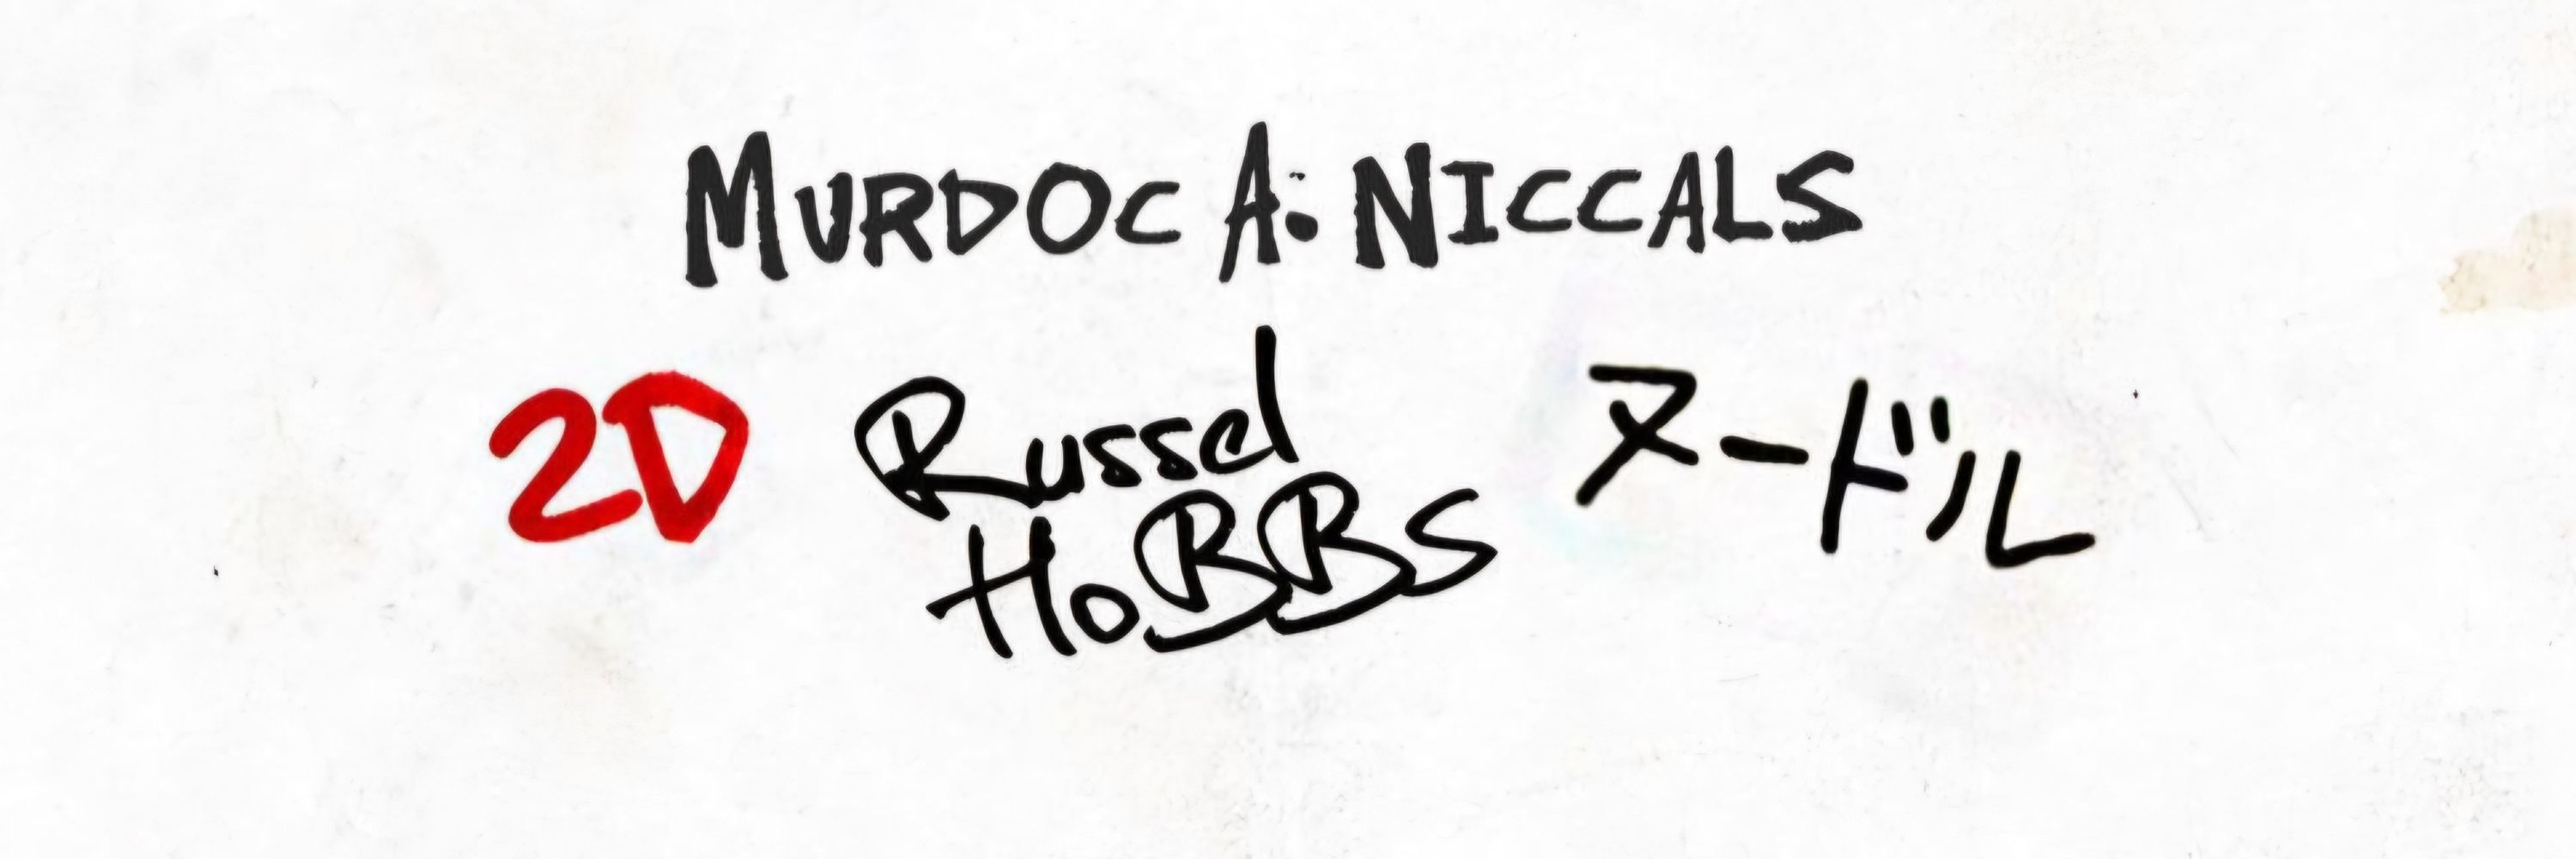 MURDOC A. NICCALS
2D
Russel
HoBBS
ヌードル